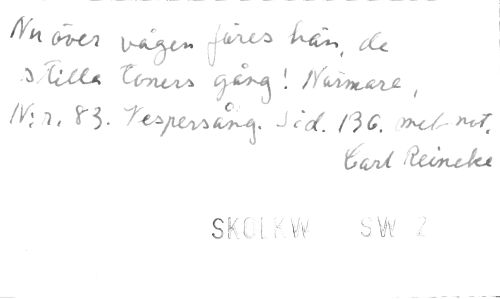 Nu över vågen föres hän, de
stilla toners gång! Närmare,
N:r. 83. Vespersång. Sid. 136. met not.
Carl Reineke
SKOLKW SW 2